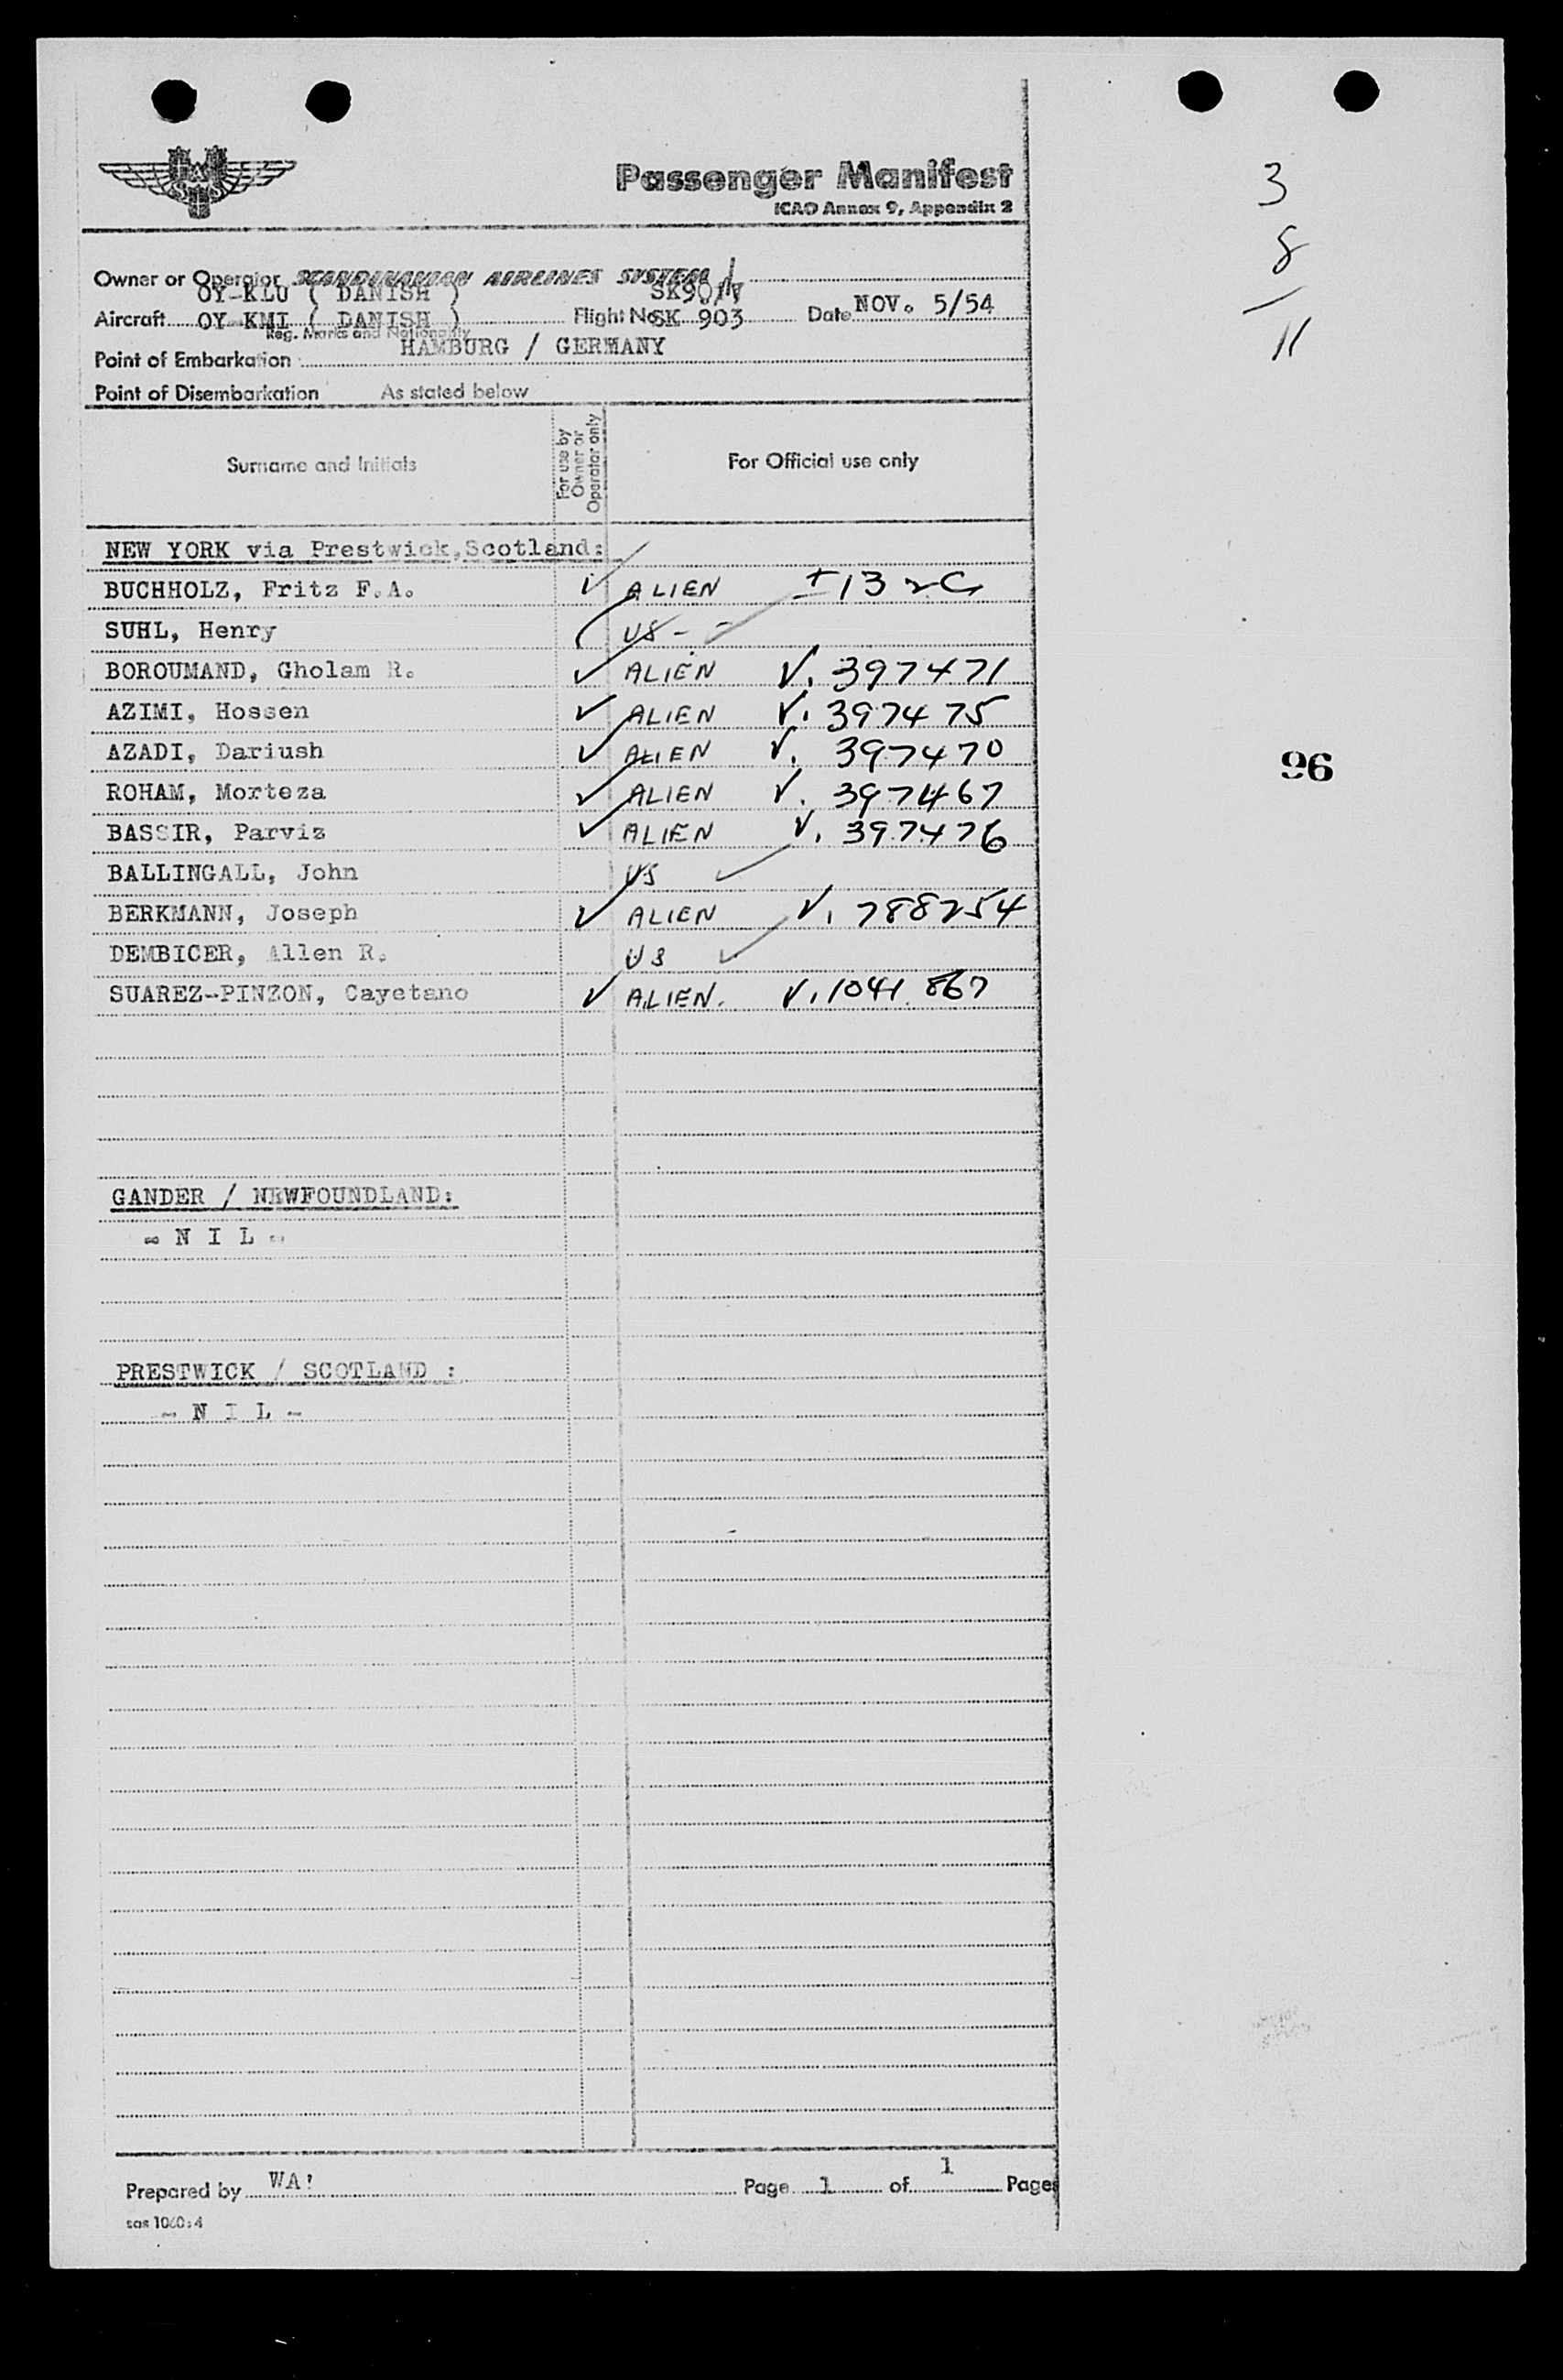 SAS
Passenger Manifest
ICAO Annex 9, Appendix 2
3
8
11
Owner or Operator SCANDINAVIAN AIRLINES SYSTEM
OY-KLU ( DANISH )
Aircraft OY-KMI ( DANISH ) Flight No. SK 903 Date NOV. 5/54
Reg. Marks and Nationality
Point of Embarkation HAMBURG / GERMANY
Point of Disembarkation As stated below
Surname and Initials
For use by Owner or Operator only
For Official use only
NEW YORK via Prestwick,Scotland:
BUCHHOLZ, Fritz F.A. ✓ ALIEN
SUHL, Henry US -
BOROUMAND, Gholam R. ✓ ALIEN V. 397471
AZIMI, Hossen ✓ ALIEN V. 397475
AZADI, Dariush ✓ ALIEN V. 397470
ROHAM, Morteza ✓ ALIEN V. 397467
BASSIR, Parviz ✓ ALIEN V. 397476
BALLINGALL, John US ✓
BERKMANN, Joseph ✓ ALIEN V. 788254
DEMBICER, Allen R. US ✓
SUAREZ-PINZON, Cayetano ✓ ALIEN. V. 1041867
96
GANDER / NEWFOUNDLAND:
- N I L -
PRESTWICK / SCOTLAND :
- N I L -
Prepared by WA' Page 1 of 1 Pages
sas 1060:4